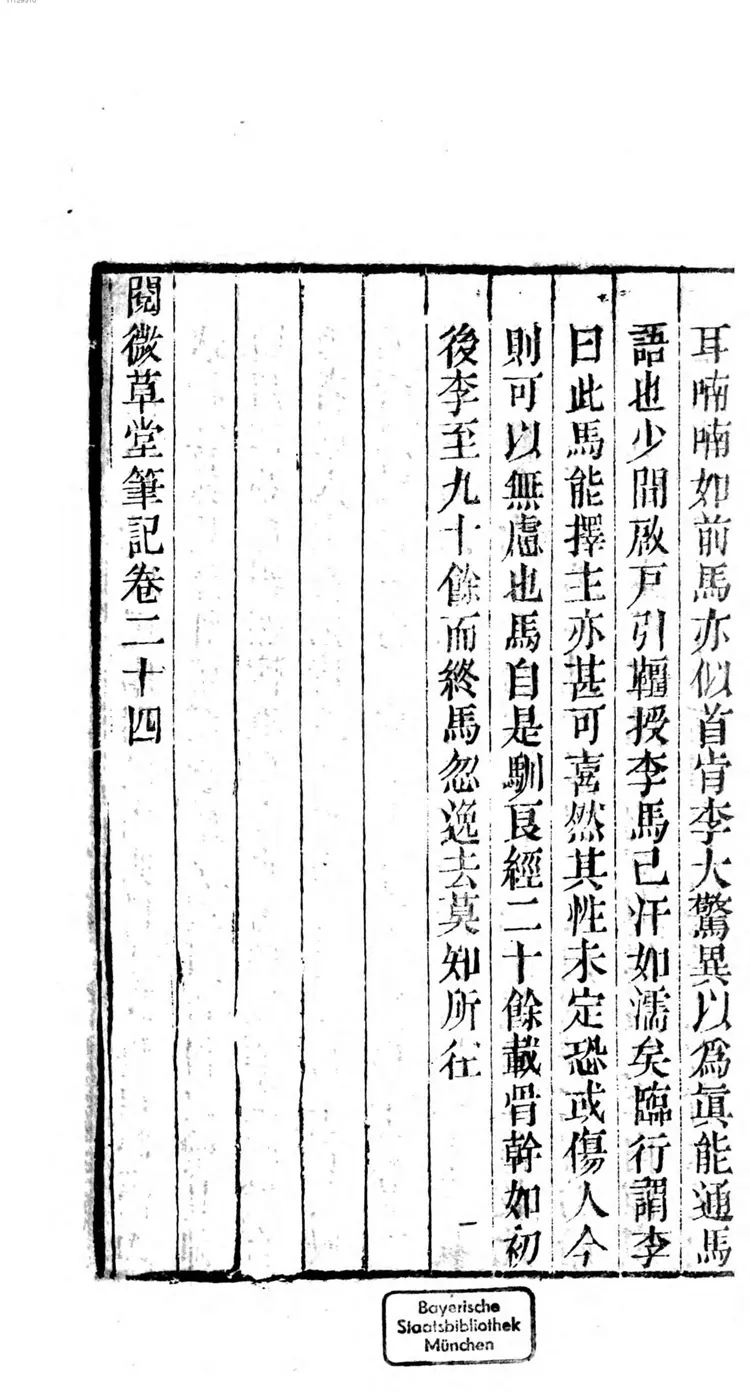 耳喃喃如前馬亦似首肯李大驚異以爲眞能通馬
語也少間啟戸引韁授李馬已汗如濡矣臨行謂李
曰此馬能擇主亦甚可喜然其性未定恐或傷人今
則可以無慮也馬自是馴良經二十餘載骨幹如初
後李至九十餘而終馬忽逸去莫知所往
閱微草堂筆記卷二十四
Bayerische
Staatsbibliothek
München